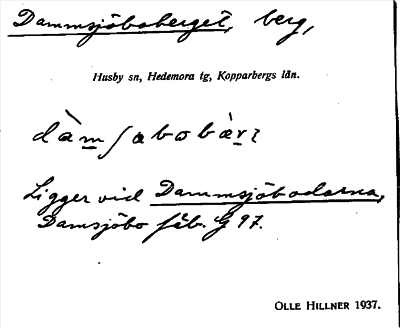 Dammsjöboberget, berg,
Husby sn, Hedemora tg, Kopparbergs län.
dàmʃabobàrɩ
Ligger vid Dammsjöbodarna,
Damsjöbo fäb. G 97.
OLLE HILLNER 1937.